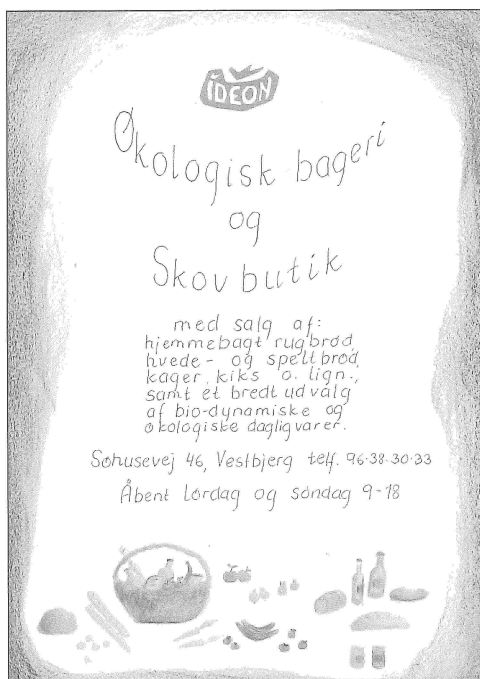 IDEON
Økologisk bageri
og
Skovbutik
med salg af:
hjemmebagt rugbrød,
hvede- og speltbrød,
kager, kiks o. lign.,
samt et bredt udvalg
af bio-dynamiske og
økologiske dagligvarer.
Sohusevej 46, Vestbjerg telf. 96·38·30·33
Åbent Lørdag og søndag 9-18